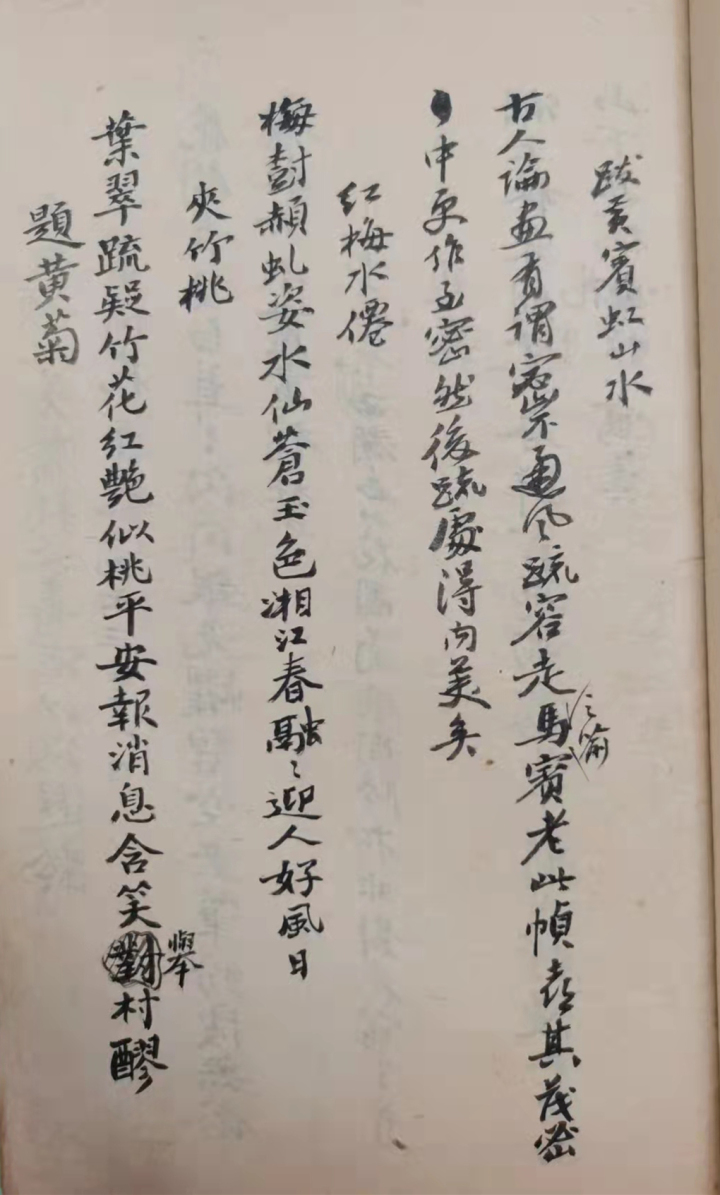 跋黃賓虹山水
古人論畫有謂密不通風疏容走馬之喻賓老此幀喜其茂密
中更作至密然後疏處得內美矣
紅梅水僊
梅尌赬虬姿水仙蒼玉色湘江春融〻迎人好風日
夾竹桃
葉翠疏疑竹花紅艷似桃平安報消息含笑舉村醪
題黃菊